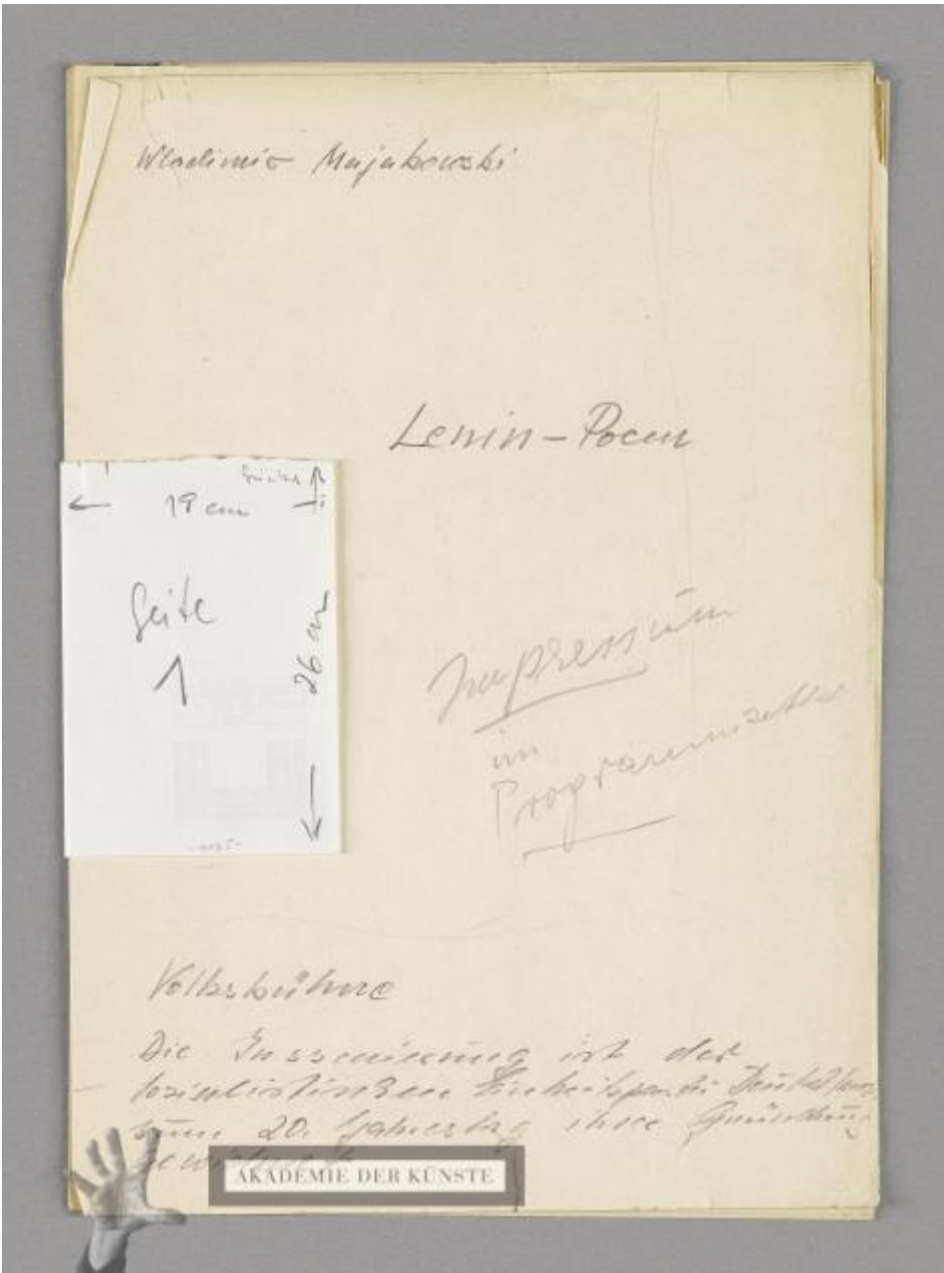 Wladimir Majakowski
Lenin-Poem
19 cm
Seite
1
26 cm
Impressum
im
Programmzettel
Volksbühne
Die Inszenierung ist der
sozialistischen Einheitspartei Deutschlands
zum 20. Jahrestag ihrer Gründung
gewidmet
AKADEMIE DER KÜNSTE